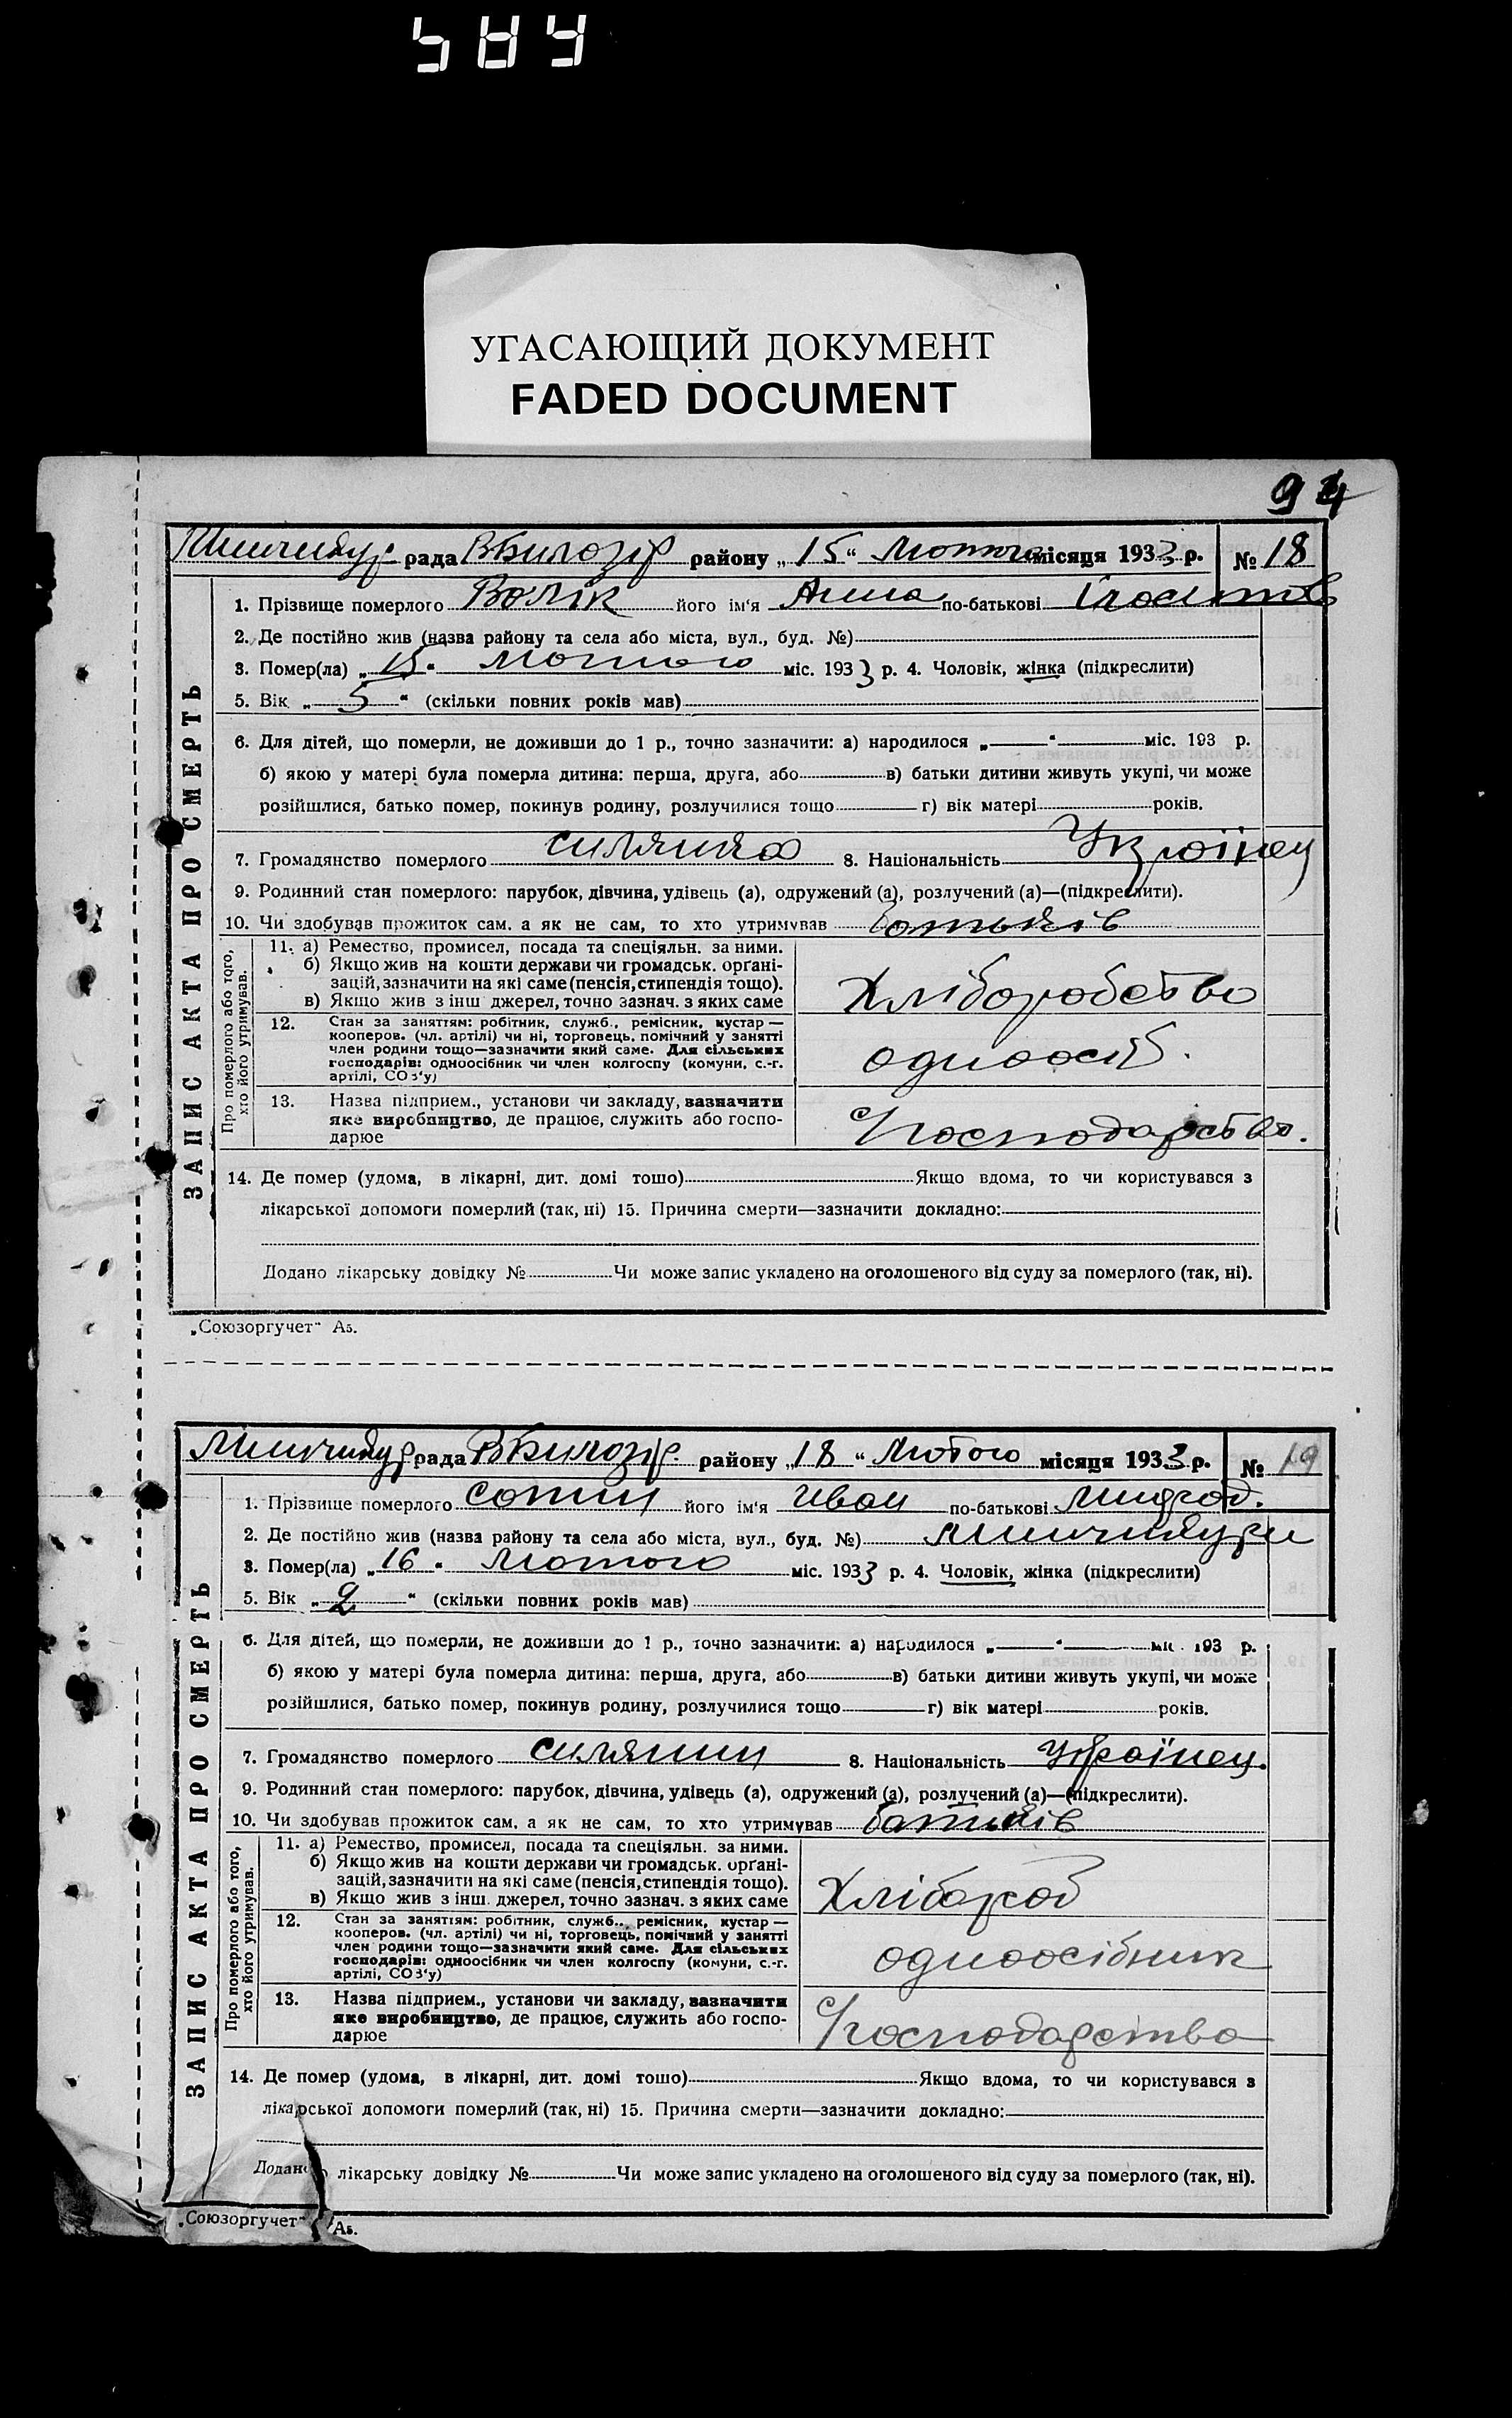 УГАСАЮЩИЙ ДОКУМЕНТ
FADED DOCUMENT
94
рада району „15“ Лютого місяця 1933 р. № 18
ЗАПИС АКТА ПРО СМЕРТЬ
1. Прізвище померлого Волік його ім'я Анна по-батькові
2. Де постійно жив (назва району та села або міста, вул., буд. №)
3. Помер(ла) „15“ Лютого міс. 1933 р. 4. Чоловік, жінка (підкреслити)
5. Вік „5“ (скільки повних років мав)
6. Для дітей, що померли, не доживши до 1 р., точно зазначити: а) народилося „ “ міс. 193 р.
б) якою у матері була померла дитина: перша, друга, або в) батьки дитини живуть укупі, чи може
розійшлися, батько помер, покинув родину, розлучилися тощо г) вік матері років.
7. Громадянство померлого 8. Національність Українец
9. Родинний стан померлого: парубок, дівчина, удівець (а), одружений (а), розлучений (а)—(підкреслити).
10. Чи здобував прожиток сам, а як не сам, то хто утримував батьків
Про померлого або того, хто його утримував.
11. а) Ремество, промисел, посада та спеціяльн. за ними.
б) Якщо жив на кошти держави чи громадськ. орґані-
зацій, зазначити на які саме (пенсія, стипендія тощо).
в) Якщо жив з інш джерел, точно зазнач. з яких саме
Хліборобство
12. Стан за заняттям: робітник, служб., ремісник, кустар —
кооперов. (чл. артілі) чи ні, торговець, помічний у занятті
член родини тощо—зазначити який саме. Для сільських
господарів: одноосібник чи член колгоспу (комуни, с.-г.
артілі, СОЗ'у)
одноосіб.
13. Назва підприєм., установи чи закладу, вазначити
яке виробництво, де працює, служить або госпо-
дарює
Господарство.
14. Де помер (удома, в лікарні, дит. домі тощо) Якщо вдома, то чи користувався з
лікарської допомоги померлий (так, ні) 15. Причина смерти—зазначити докладно:
Додано лікарську довідку № Чи може запис укладено на оголошеного від суду за померлого (так, ні).
„Союзоргучет“ А5.
рада району „18“ Лютого місяця 1933 р. № 19
ЗАПИС АКТА ПРО СМЕРТЬ
1. Прізвище померлого його ім'я Иван по-батькові
2. Де постійно жив (назва району та села або міста, вул., буд. №)
3. Помер(ла) „16“ Лютого міс. 1933 р. 4. Чоловік, жінка (підкреслити)
5. Вік „2“ (скільки повних років мав)
6. Для дітей, що померли, не доживши до 1 р., точно зазначити: а) народилося „ “ міс. 193 р.
б) якою у матері була померла дитина: перша, друга, або в) батьки дитини живуть укупі, чи може
розійшлися, батько помер, покинув родину, розлучилися тощо г) вік матері років.
7. Громадянство померлого силянин 8. Національність Українец.
9. Родинний стан померлого: парубок, дівчина, удівець (а), одружений (а), розлучений (а)—(підкреслити).
10. Чи здобував прожиток сам, а як не сам, то хто утримував батьків
Про померлого або того, хто його утримував.
11. а) Ремество, промисел, посада та спеціяльн. за ними.
б) Якщо жив на кошти держави чи громадськ. орґані-
зацій, зазначити на які саме (пенсія, стипендія тощо).
в) Якщо жив з інш. джерел, точно зазнач. з яких саме
Хлібороб
12. Стан за заняттям: робітник, служб., ремісник, кустар —
кооперов. (чл. артілі) чи ні, торговець, помічний у занятті
член родини тощо—зазначити який саме. Для сільських
господарів: одноосібник чи член колгоспу (комуни, с.-г.
артілі, СОЗ'у)
одноосібник
13. Назва підприєм., установи чи закладу, вазначити
яке виробництво, де працює, служить або госпо-
дарює
Господарство
14. Де помер (удома, в лікарні, дит. домі тощо) Якщо вдома, то чи користувався з
лікарської допомоги померлий (так, ні) 15. Причина смерти—зазначити докладно:
Додано лікарську довідку № Чи може запис укладено на оголошеного від суду за померлого (так, ні).
„Союзоргучет“ А5.